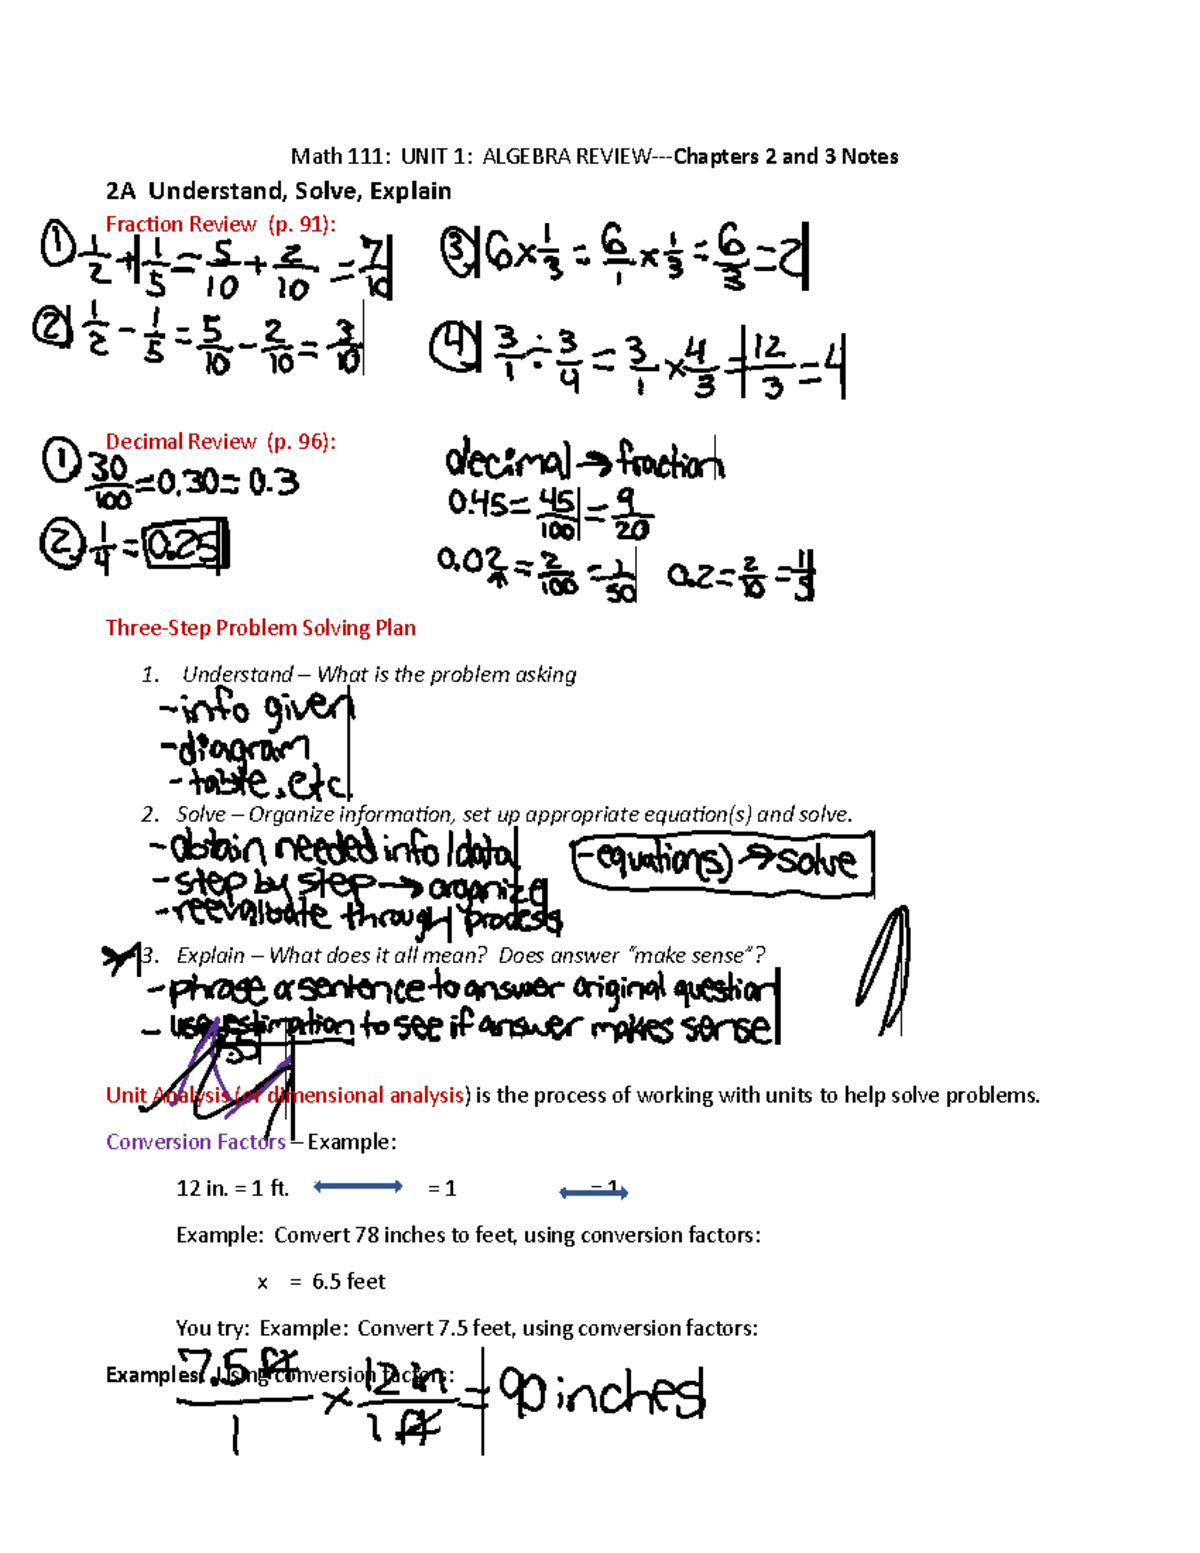 Math 111: UNIT 1: ALGEBRA REVIEW---Chapters 2 and 3 Notes
2A Understand, Solve, Explain
Fraction Review (p. 91):
① 1/2 + 1/5 = 5/10 + 2/10 = 7/10
③ 6 × 1/3 = 6/1 × 1/3 = 6/3 = 2
② 1/2 - 1/5 = 5/10 - 2/10 = 3/10
④ 3/1 ÷ 3/4 = 3/1 × 4/3 = 12/3 = 4
Decimal Review (p. 96):
① 30/100 = 0.30 = 0.3
② 1/4 = 0.25
decimal → fraction
0.45 = 45/100 = 9/20
0.02 = 2/100 = 1/50 0.2 = 2/10 = 1/5
Three-Step Problem Solving Plan
1. Understand – What is the problem asking
- info given
- diagram
- table, etc.
2. Solve – Organize information, set up appropriate equation(s) and solve.
- obtain needed info/data
- step by step → organize
- reevaluate through process
- equation(s) → solve
3. Explain – What does it all mean? Does answer "make sense"?
- phrase a sentence to answer original question
- use estimation to see if answer makes sense
Unit Analysis (or dimensional analysis) is the process of working with units to help solve problems.
Conversion Factors – Example:
12 in. = 1 ft. = 1 = 1
Example: Convert 78 inches to feet, using conversion factors:
x = 6.5 feet
You try: Example: Convert 7.5 feet, using conversion factors:
Examples: Using conversion factors:
7.5 ft/1 × 12 in/1 ft = 90 inches